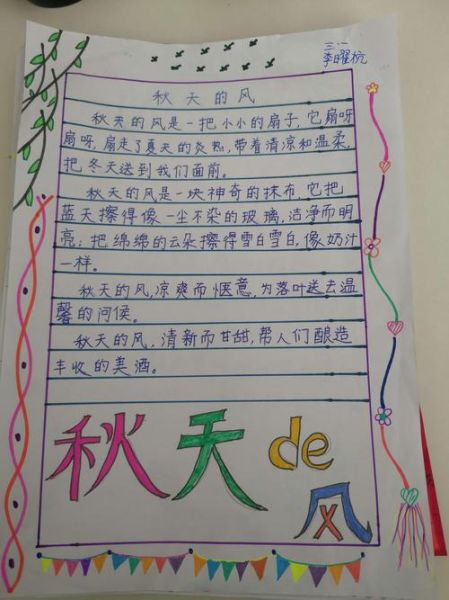 三、
李曜杭
秋天的风
秋天的风是一把小小的扇子,它扇呀
扇呀,扇走了夏天的炎热,带着清凉和温柔,
把冬天送到我们面前。
秋天的风是一块神奇的抹布,它把
蓝天擦得像一尘不染的玻璃,洁净而明
亮;把绵绵的云朵擦得雪白雪白,像奶汁
一样。
秋天的风,凉爽而惬意,为落叶送去温
馨的问侯。
秋天的风,清新而甘甜,帮人们酿造
丰收的美酒。
秋天de
风